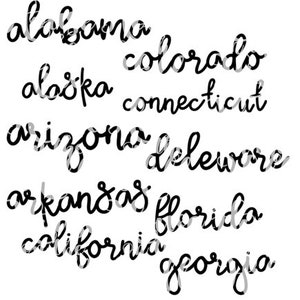 alabama
colorado
alaska
connecticut
arizona
deleware
arkansas
florida
california
georgia